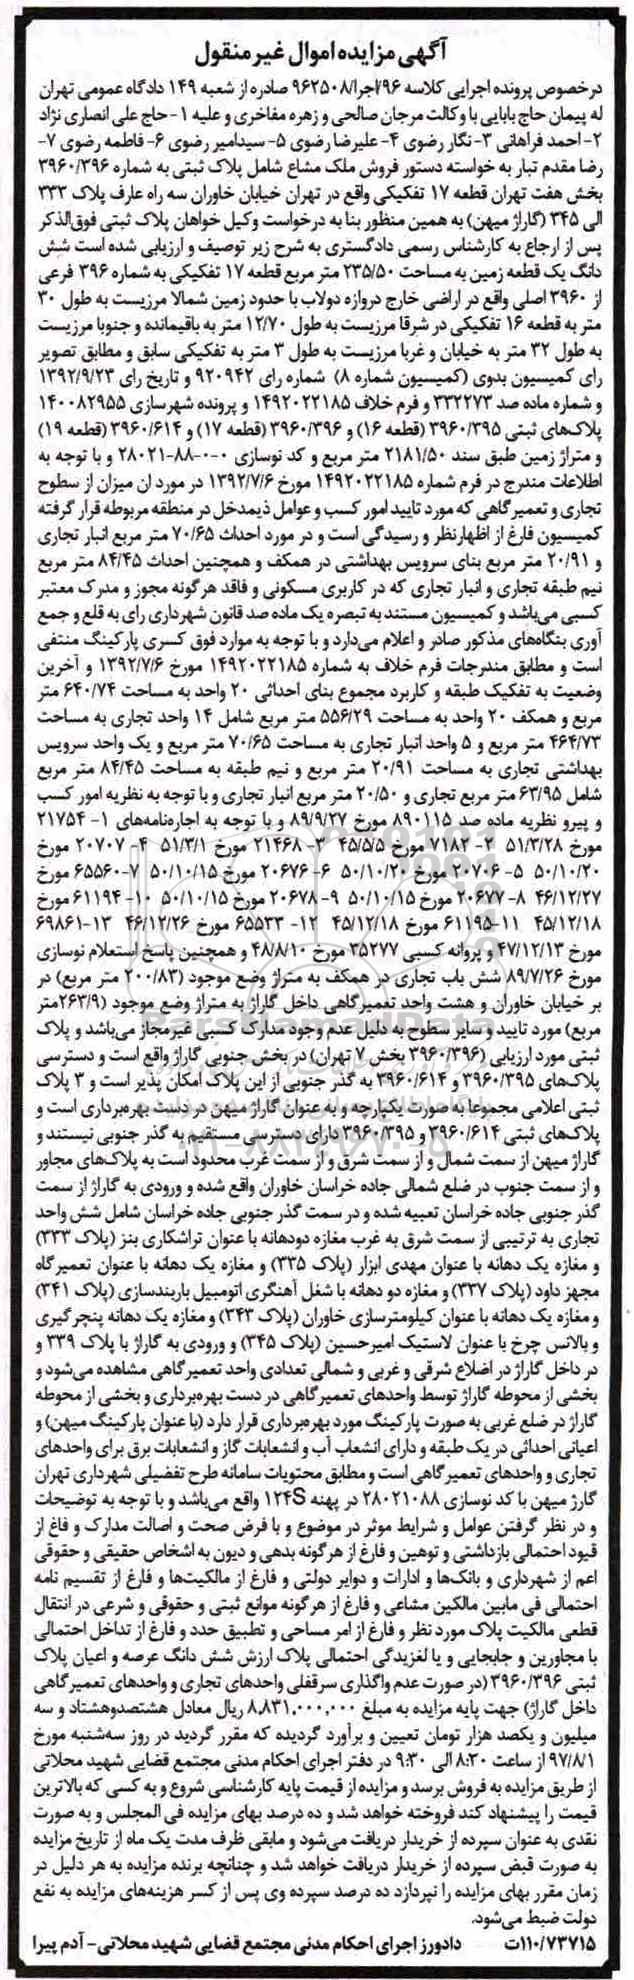 آگهی مزایده اموال غیر منقول
درخصوص پرونده اجرایی کلاسه ۹۶/اجرا/۹۶۲۵۰۸ صادره از شعبه ۱۴۹ دادگاه عمومی تهران
له پیمان حاج بابایی با وکالت مرجان صالحی و زهره مفاخری و علیه ۱- حاج علی انصاری نژاد
۲- احمد فراهانی ۳- نگار رضوی ۴- علیرضا رضوی ۵- سیدامیر رضوی ۶- فاطمه رضوی ۷-
رضا مقدم تبار به خواسته دستور فروش ملک مشاع شامل پلاک ثبتی به شماره ۳۹۶۰/۳۹۶
بخش هفت تهران قطعه ۱۷ تفکیکی واقع در تهران خیابان خاوران سه راه عارف پلاک ۳۳۳
الی ۳۴۵ (گاراژ میهن) به همین منظور بنا به درخواست وکیل خواهان پلاک ثبتی فوق‌الذکر
پس از ارجاع به کارشناس رسمی دادگستری به شرح زیر توصیف و ارزیابی شده است شش
دانگ یک قطعه زمین به مساحت ۲۳۵/۵۰ متر مربع قطعه ۱۷ تفکیکی به شماره ۳۹۶ فرعی
از ۳۹۶۰ اصلی واقع در اراضی خارج دروازه دولاب با حدود زمین شمالا مرزیست به طول ۳۰
متر به قطعه ۱۶ تفکیکی در شرقا مرزیست به طول ۱۲/۷۰ متر به باقیمانده و جنوبا مرزیست
به طول ۳۲ متر به خیابان و غربا مرزیست به طول ۳ متر به تفکیکی سابق و مطابق تصویر
رای کمیسیون بدوی (کمیسیون شماره ۸) شماره رای ۹۲۰۹۴۲ و تاریخ رای ۱۳۹۲/۹/۲۳
و شماره ماده صد ۳۳۲۲۷۳ و فرم خلاف ۱۴۹۲۰۲۲۱۸۵ و پرونده شهرسازی ۱۴۰۰۸۲۹۵۵
پلاک‌های ثبتی ۳۹۶۰/۳۹۵ (قطعه ۱۶) و ۳۹۶۰/۳۹۶ (قطعه ۱۷) و ۳۹۶۰/۶۱۴ (قطعه ۱۹)
و متراژ زمین طبق سند ۲۱۸۱/۵۰ متر مربع و کد نوسازی ۰-۰-۸۸-۲۸۰۲۱ و با توجه به
اطلاعات مندرج در فرم شماره ۱۴۹۲۰۲۲۱۸۵ مورخ ۱۳۹۲/۷/۶ در مورد ان میزان از سطوح
تجاری و تعمیرگاهی که مورد تایید امور کسب و عوامل ذیمدخل در منطقه مربوطه قرار گرفته
کمیسیون فارغ از اظهارنظر و رسیدگی است و در مورد احداث ۷۰/۶۵ متر مربع انبار تجاری
و ۲۰/۹۱ متر مربع بنای سرویس بهداشتی در همکف و همچنین احداث ۸۴/۴۵ متر مربع
نیم طبقه تجاری و انبار تجاری که در کاربری مسکونی و فاقد هرگونه مجوز و مدرک معتبر
کسبی می‌باشد و کمیسیون مستند به تبصره یک ماده صد قانون شهرداری رای به قلع و جمع
آوری بنگاه‌های مذکور صادر و اعلام می‌دارد و با توجه به موارد فوق کسری پارکینگ منتفی
است و مطابق مندرجات فرم خلاف به شماره ۱۴۹۲۰۲۲۱۸۵ مورخ ۱۳۹۲/۷/۶ و آخرین
وضعیت به تفکیک طبقه و کاربرد مجموع بنای احداثی ۲۰ واحد به مساحت ۶۴۰/۷۴ متر
مربع و همکف ۲۰ واحد به مساحت ۵۵۶/۲۹ متر مربع شامل ۱۴ واحد تجاری به مساحت
۴۶۴/۷۳ متر مربع و ۵ واحد انبار تجاری به مساحت ۷۰/۶۵ متر مربع و یک واحد سرویس
بهداشتی تجاری به مساحت ۲۰/۹۱ متر مربع و نیم طبقه به مساحت ۸۴/۴۵ متر مربع
شامل ۶۳/۹۵ متر مربع تجاری و ۲۰/۵۰ متر مربع انبار تجاری و با توجه به نظریه امور کسب
و پیرو نظریه ماده صد ۸۹۰۱۱۵ مورخ ۸۹/۹/۲۷ و با توجه به اجاره‌نامه‌های ۱- ۲۱۷۵۴
مورخ ۵۱/۳/۲۸ ۲- ۷۱۸۲ مورخ ۴۵/۵/۵ ۳- ۲۱۴۶۸ مورخ ۵۱/۳/۱ ۴- ۲۰۷۰۷ مورخ
۵۰/۱۰/۲۰ ۵- ۲۰۷۰۶ مورخ ۵۰/۱۰/۲۰ ۶- ۲۰۶۷۶ مورخ ۵۰/۱۰/۱۵ ۷-۶۵۵۶۰ مورخ
۴۶/۱۲/۲۷ ۸- ۲۰۶۷۷ مورخ ۵۰/۱۰/۱۵ ۹- ۲۰۶۷۸ مورخ ۵۰/۱۰/۱۵ ۱۰- ۶۱۱۹۴ مورخ
۴۵/۱۲/۱۸ ۱۱- ۶۱۱۹۵ مورخ ۴۵/۱۲/۱۸ ۱۲- ۶۵۵۳۳ مورخ ۴۶/۱۲/۲۶ ۱۳- ۶۹۸۶۱
مورخ ۴۷/۱۲/۱۳ و پروانه کسبی ۲۵۲۷۷ مورخ ۴۸/۸/۱۰ و همچنین پاسخ استعلام نوسازی
مورخ ۸۹/۷/۲۶ شش باب تجاری در همکف به متراژ وضع موجود (۲۰۰/۸۳ متر مربع) در
بر خیابان خاوران و هشت واحد تعمیرگاهی داخل گاراژ به متراژ وضع موجود (۲۶۳/۹متر
مربع) مورد تایید و سایر سطوح به دلیل عدم وجود مدارک کسبی غیرمجاز می‌باشد و پلاک
ثبتی مورد ارزیابی (۳۹۶۰/۳۹۶ بخش ۷ تهران) در بخش جنوبی گاراژ واقع است و دسترسی
پلاک‌های ۳۹۶۰/۳۹۵ و ۳۹۶۰/۶۱۴ به گذر جنوبی از این پلاک امکان پذیر است و ۳ پلاک
ثبتی اعلامی مجموعا به صورت یکپارچه و به عنوان گاراژ میهن در دست بهره‌برداری است و
پلاک‌های ثبتی ۳۹۶۰/۶۱۴ و ۳۹۶۰/۳۹۵ دارای دسترسی مستقیم به گذر جنوبی نیستند و
گاراژ میهن از سمت شمال و از سمت شرق و از سمت غرب محدود است به پلاک‌های مجاور
و از سمت جنوب در ضلع شمالی جاده خراسان خاوران واقع شده و ورودی به گاراژ از سمت
گذر جنوبی جاده خراسان تعبیه شده و در سمت گذر جنوبی جاده خراسان شامل شش واحد
تجاری به ترتیبی از سمت شرق به غرب مغازه دودهانه با عنوان تراشکاری بنز (پلاک ۳۳۳)
و مغازه یک دهانه با عنوان مهدی ابزار (پلاک ۳۳۵) و مغازه یک دهانه با عنوان تعمیرگاه
مجهز داود (پلاک ۳۳۷) و مغازه دو دهانه با شغل آهنگری اتومبیل باربندسازی (پلاک ۳۴۱)
و مغازه یک دهانه با عنوان کیلومترسازی خاوران (پلاک ۳۴۳) و مغازه یک دهانه پنچرگیری
و بالانس چرخ با عنوان لاستیک امیرحسین (پلاک ۳۴۵) و ورودی به گاراژ با پلاک ۳۳۹ و
در داخل گاراژ در اضلاع شرقی و غربی و شمالی تعدادی واحد تعمیرگاهی مشاهده می‌شود و
بخشی از محوطه گاراژ توسط واحدهای تعمیرگاهی در دست بهره‌برداری و بخشی از محوطه
گاراژ در ضلع غربی به صورت پارکینگ مورد بهره‌برداری قرار دارد (با عنوان پارکینگ میهن) و
اعیانی احداثی در یک طبقه و دارای انشعاب آب و انشعابات گاز و انشعابات برق برای واحدهای
تجاری و واحدهای تعمیرگاهی است و مطابق محتویات سامانه طرح تفضیلی شهرداری تهران
گارژ میهن با کد نوسازی ۲۸۰۲۱۰۸۸ در پهنه ۱۲۴S واقع می‌باشد و با توجه به توضیحات
و در نظر گرفتن عوامل و شرایط موثر در موضوع و با فرض صحت و اصالت مدارک و فاغ از
قیود احتمالی بازداشتی و توهین و فارغ از هرگونه بدهی و دیون به اشخاص حقیقی و حقوقی
اعم از شهرداری و بانک‌ها و ادارات و دوایر دولتی و فارغ از مالکیت‌ها و فارغ از تقسیم نامه
احتمالی فی مابین مالکین مشاعی و فارغ از هرگونه موانع ثبتی و حقوقی و شرعی در انتقال
قطعی مالکیت پلاک مورد نظر و فارغ از امر مساحی و تطبیق حدد و فارغ از تداخل احتمالی
با مجاورین و جابجایی و یا لغزیدگی احتمالی پلاک ارزش شش دانگ عرصه و اعیان پلاک
ثبتی ۳۹۶۰/۳۹۶ (در صورت عدم واگذاری سرقفلی واحدهای تجاری و واحدهای تعمیرگاهی
داخل گاراژ) جهت پایه مزایده به مبلغ ۸,۸۳۱,۰۰۰,۰۰۰ ریال معادل هشتصدوهشتاد و سه
میلیون و یکصد هزار تومان تعیین و برآورد گردیده که مقرر گردید در روز سه‌شنبه مورخ
۹۷/۸/۱ از ساعت ۸:۳۰ الی ۹:۳۰ در دفتر اجرای احکام مدنی مجتمع قضایی شهید محلاتی
از طریق مزایده به فروش برسد و مزایده از قیمت پایه کارشناسی شروع و به کسی که بالاترین
قیمت را پیشنهاد کند فروخته خواهد شد و ده درصد بهای مزایده فی المجلس و به صورت
نقدی به عنوان سپرده از خریدار دریافت می‌شود و مابقی ظرف مدت یک ماه از تاریخ مزایده
به صورت قبض سپرده از خریدار دریافت خواهد شد و چنانچه برنده مزایده به هر دلیل در
زمان مقرر بهای مزایده را نپردازد ده درصد سپرده وی پس از کسر هزینه‌های مزایده به نفع
دولت ضبط می‌شود.
۱۱۰/۷۳۷۱۵ت دادورز اجرای احکام مدنی مجتمع قضایی شهید محلاتی- آدم پیرا